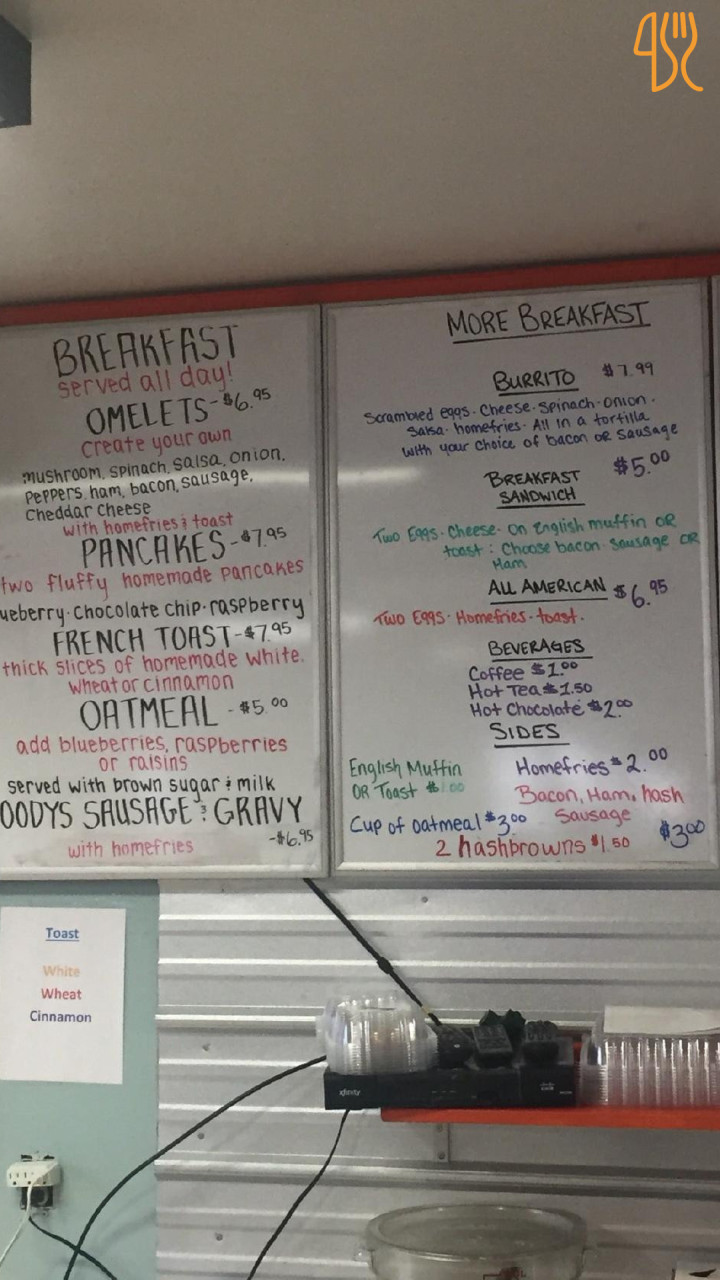 BREAKFAST
served all day!
OMELETS-$6.95
create your own
mushroom, spinach, salsa, onion,
peppers, ham, bacon, sausage,
cheddar cheese
with homefries & toast
PANCAKES-$7.95
two fluffy homemade pancakes
ueberry·chocolate chip·raspberry
FRENCH TOAST-$7.95
thick slices of homemade white.
wheat or cinnamon
OATMEAL -$5.00
add blueberries, raspberries
or raisins
served with brown sugar & milk
OODYS SAUSAGE & GRAVY
-$6.95
with homefries
MORE BREAKFAST
BURRITO $7.99
Scrambled eggs·Cheese·Spinach·onion·
Salsa·homefries·All in a tortilla
with your choice of bacon or sausage
BREAKFAST $5.00
SANDWICH
Two Eggs·Cheese·on English muffin OR
toast: Choose bacon·sausage OR
Ham
ALL AMERICAN $6.95
Two Eggs·Homefries·toast.
BEVERAGES
Coffee $1.00
Hot Tea $1.50
Hot Chocolate $2.00
SIDES
English Muffin
OR Toast $1.00
Homefries $2.00
Bacon, Ham, hash
Sausage
$3.00
Cup of oatmeal $3.00
2 hashbrowns $1.50
Toast
White
Wheat
Cinnamon
xfinity